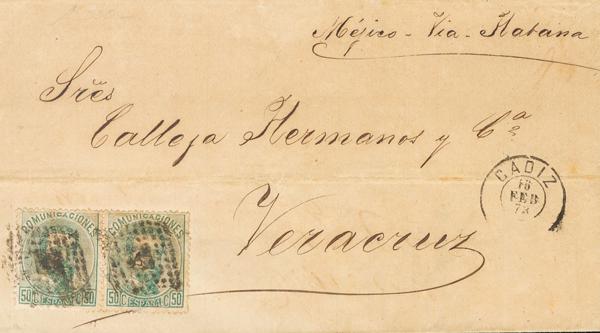 Méjico - Via - Habana
Sres
Calleja Hermanos y Ca
CADIZ
18
FEB
73
Veracruz
COMUNICACIONES
50 C. ESPAÑA C. 50
COMUNICACIONES
50 C. ESPAÑA C. 50